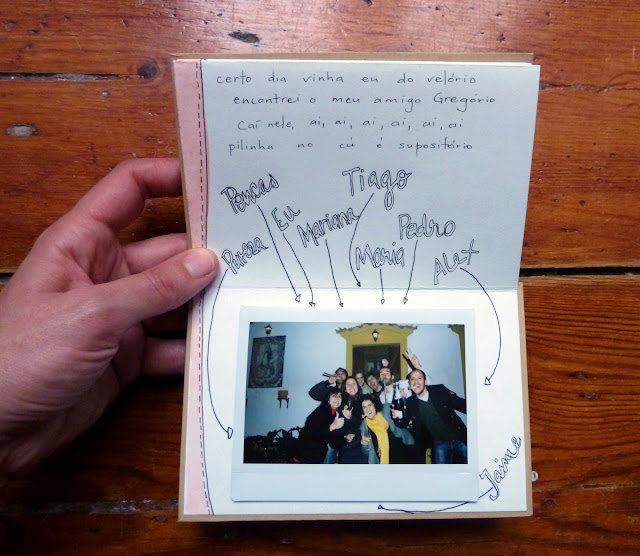 certo dia vinha eu do velório
encontrei o meu amigo Gregório
Caí nele, ai, ai, ai, ai, ai, ai
pilinha no cú é supositório
Tiago
Eu
Mariana
Pedro
Maria
Alex
Jaime